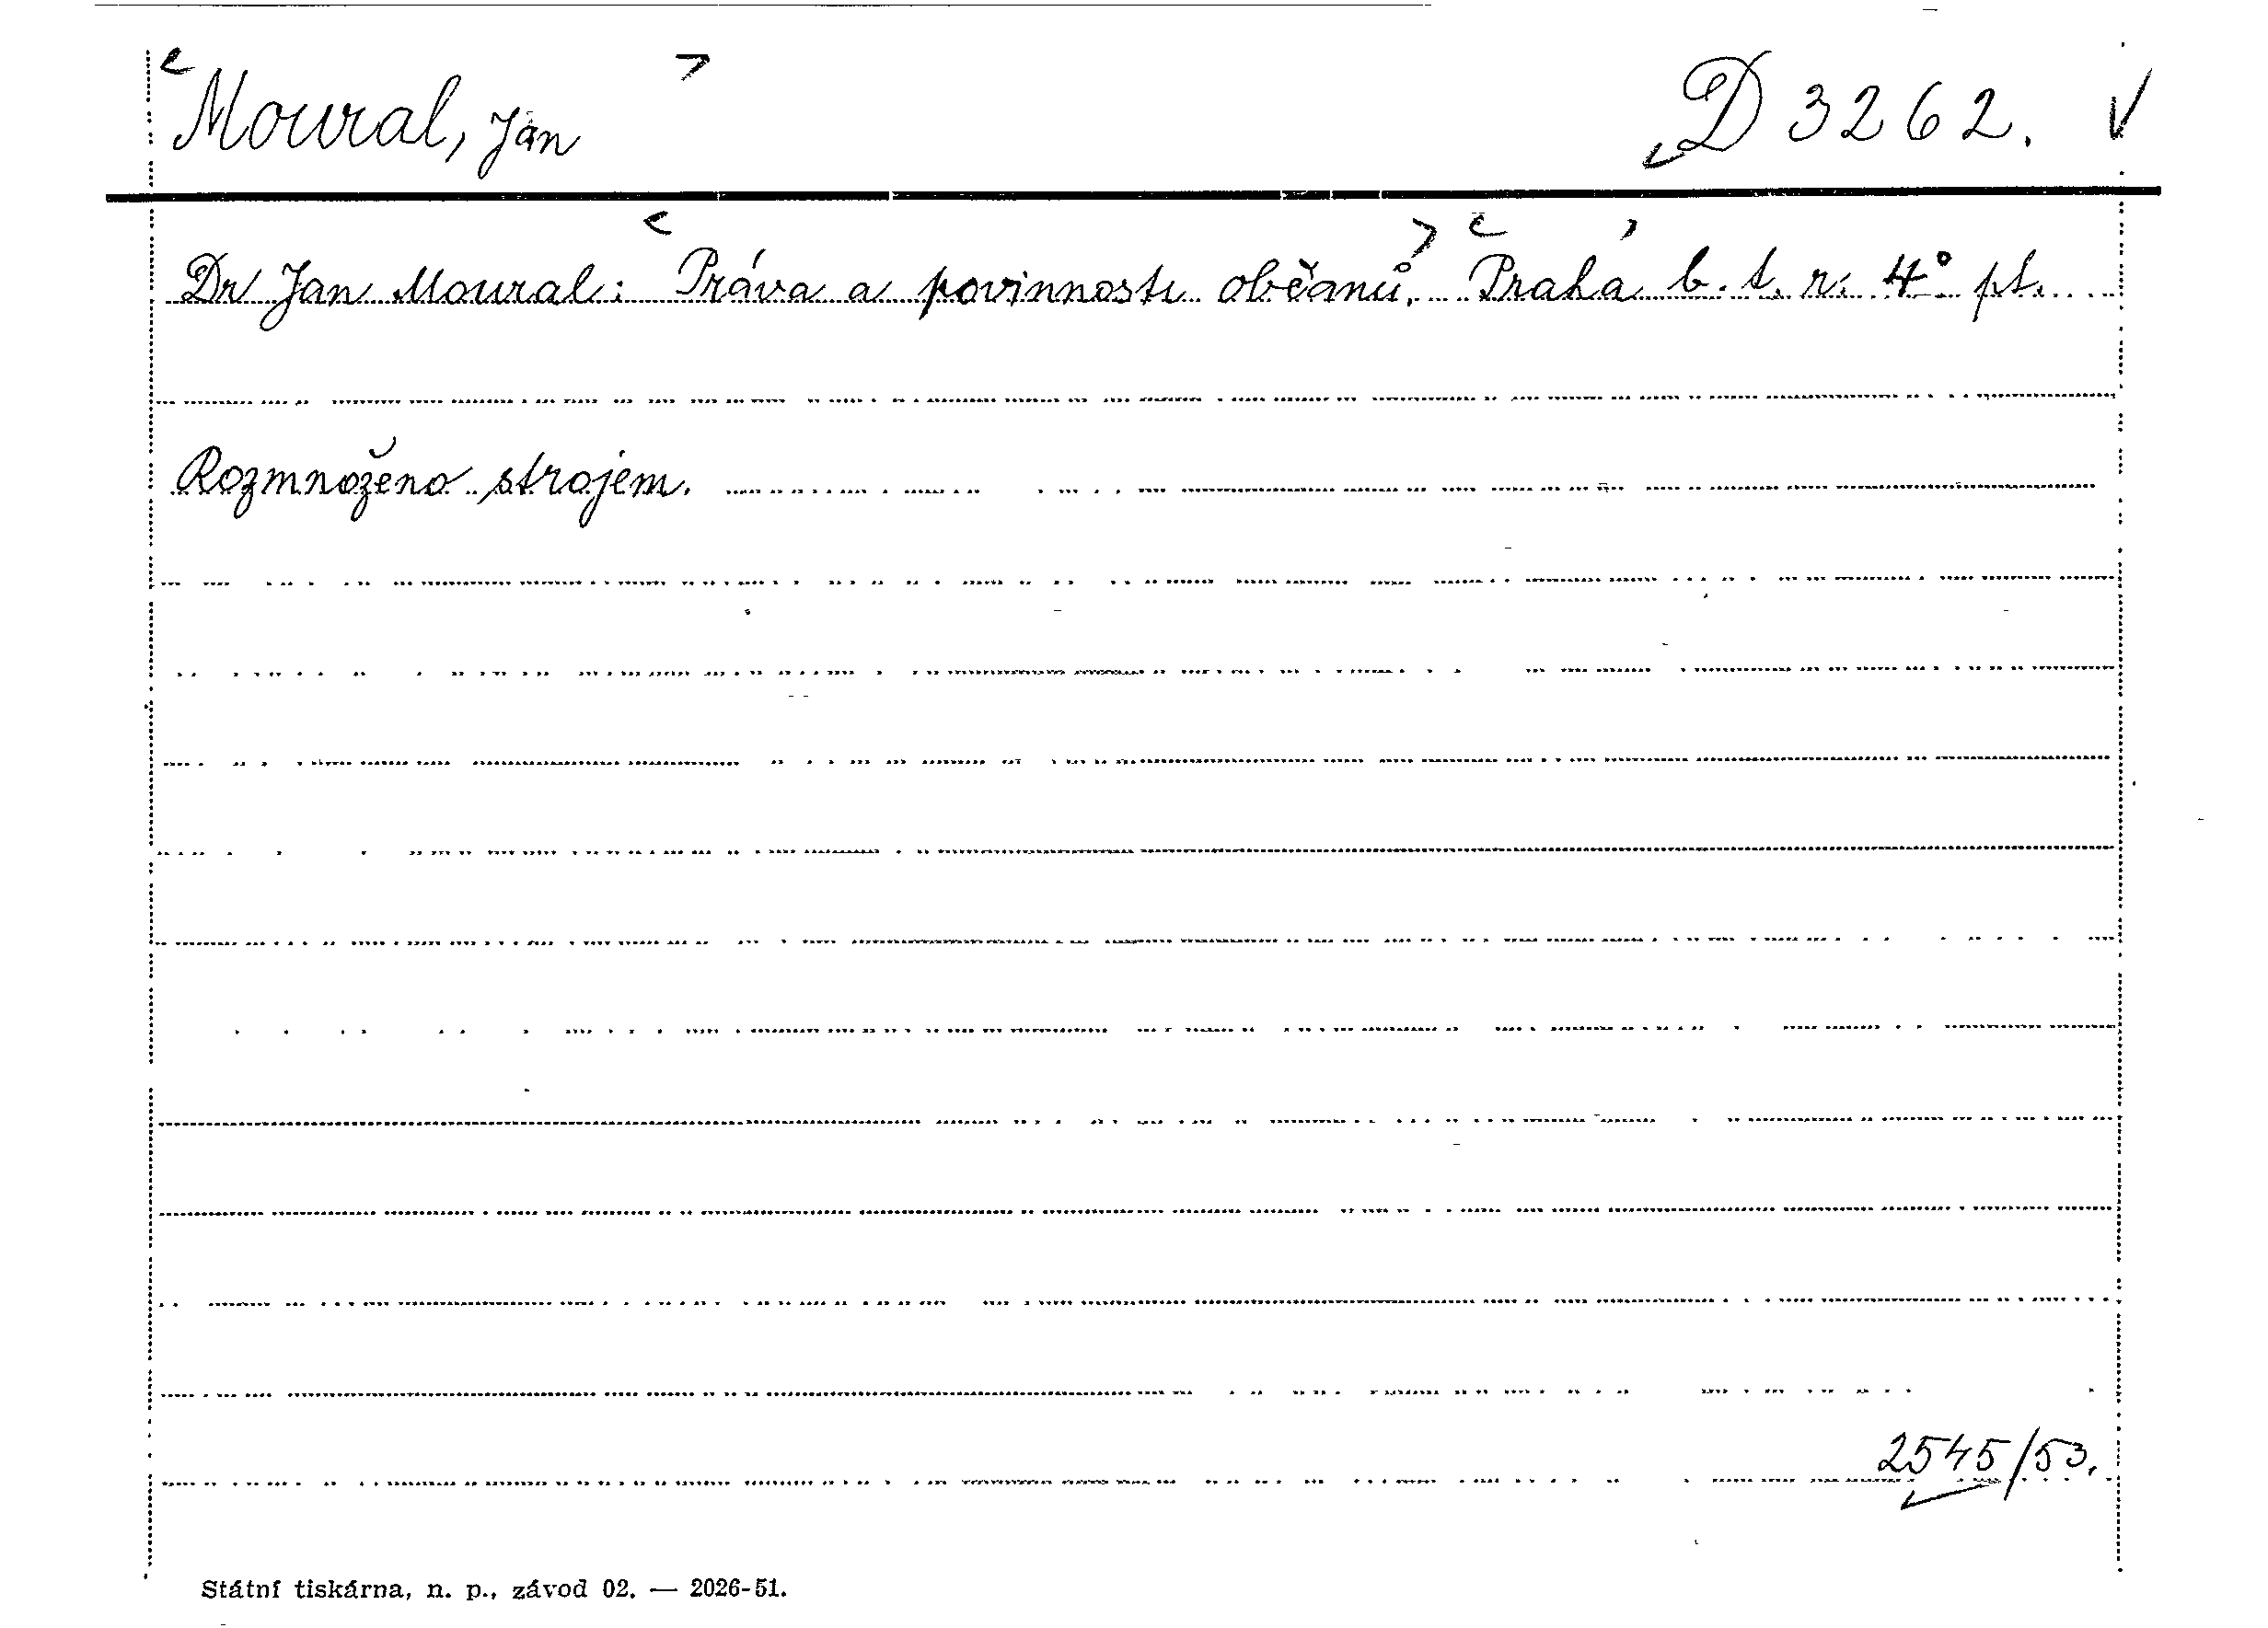 Moural, Jan D 3262.
Dr Jan Moural: Práva a povinnosti občanů. Praha b. t. r. 4° pt.
Rozmnoženo strojem.
2545/53.
Státní tiskárna, n. p., závod 02. — 2026-51.